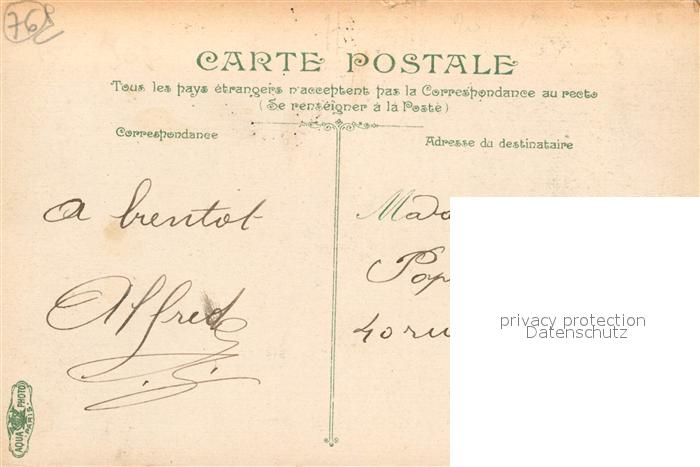 768
CARTE POSTALE
Tous les pays étrangers n'acceptent pas la Correspondance au recto
(Se renseigner à la Poste)
Correspondance
Adresse du destinataire
a bientot
Alfred
Mada
Pop
40 ru
privacy protection
Datenschutz
AQUA PHOTO
PARIS